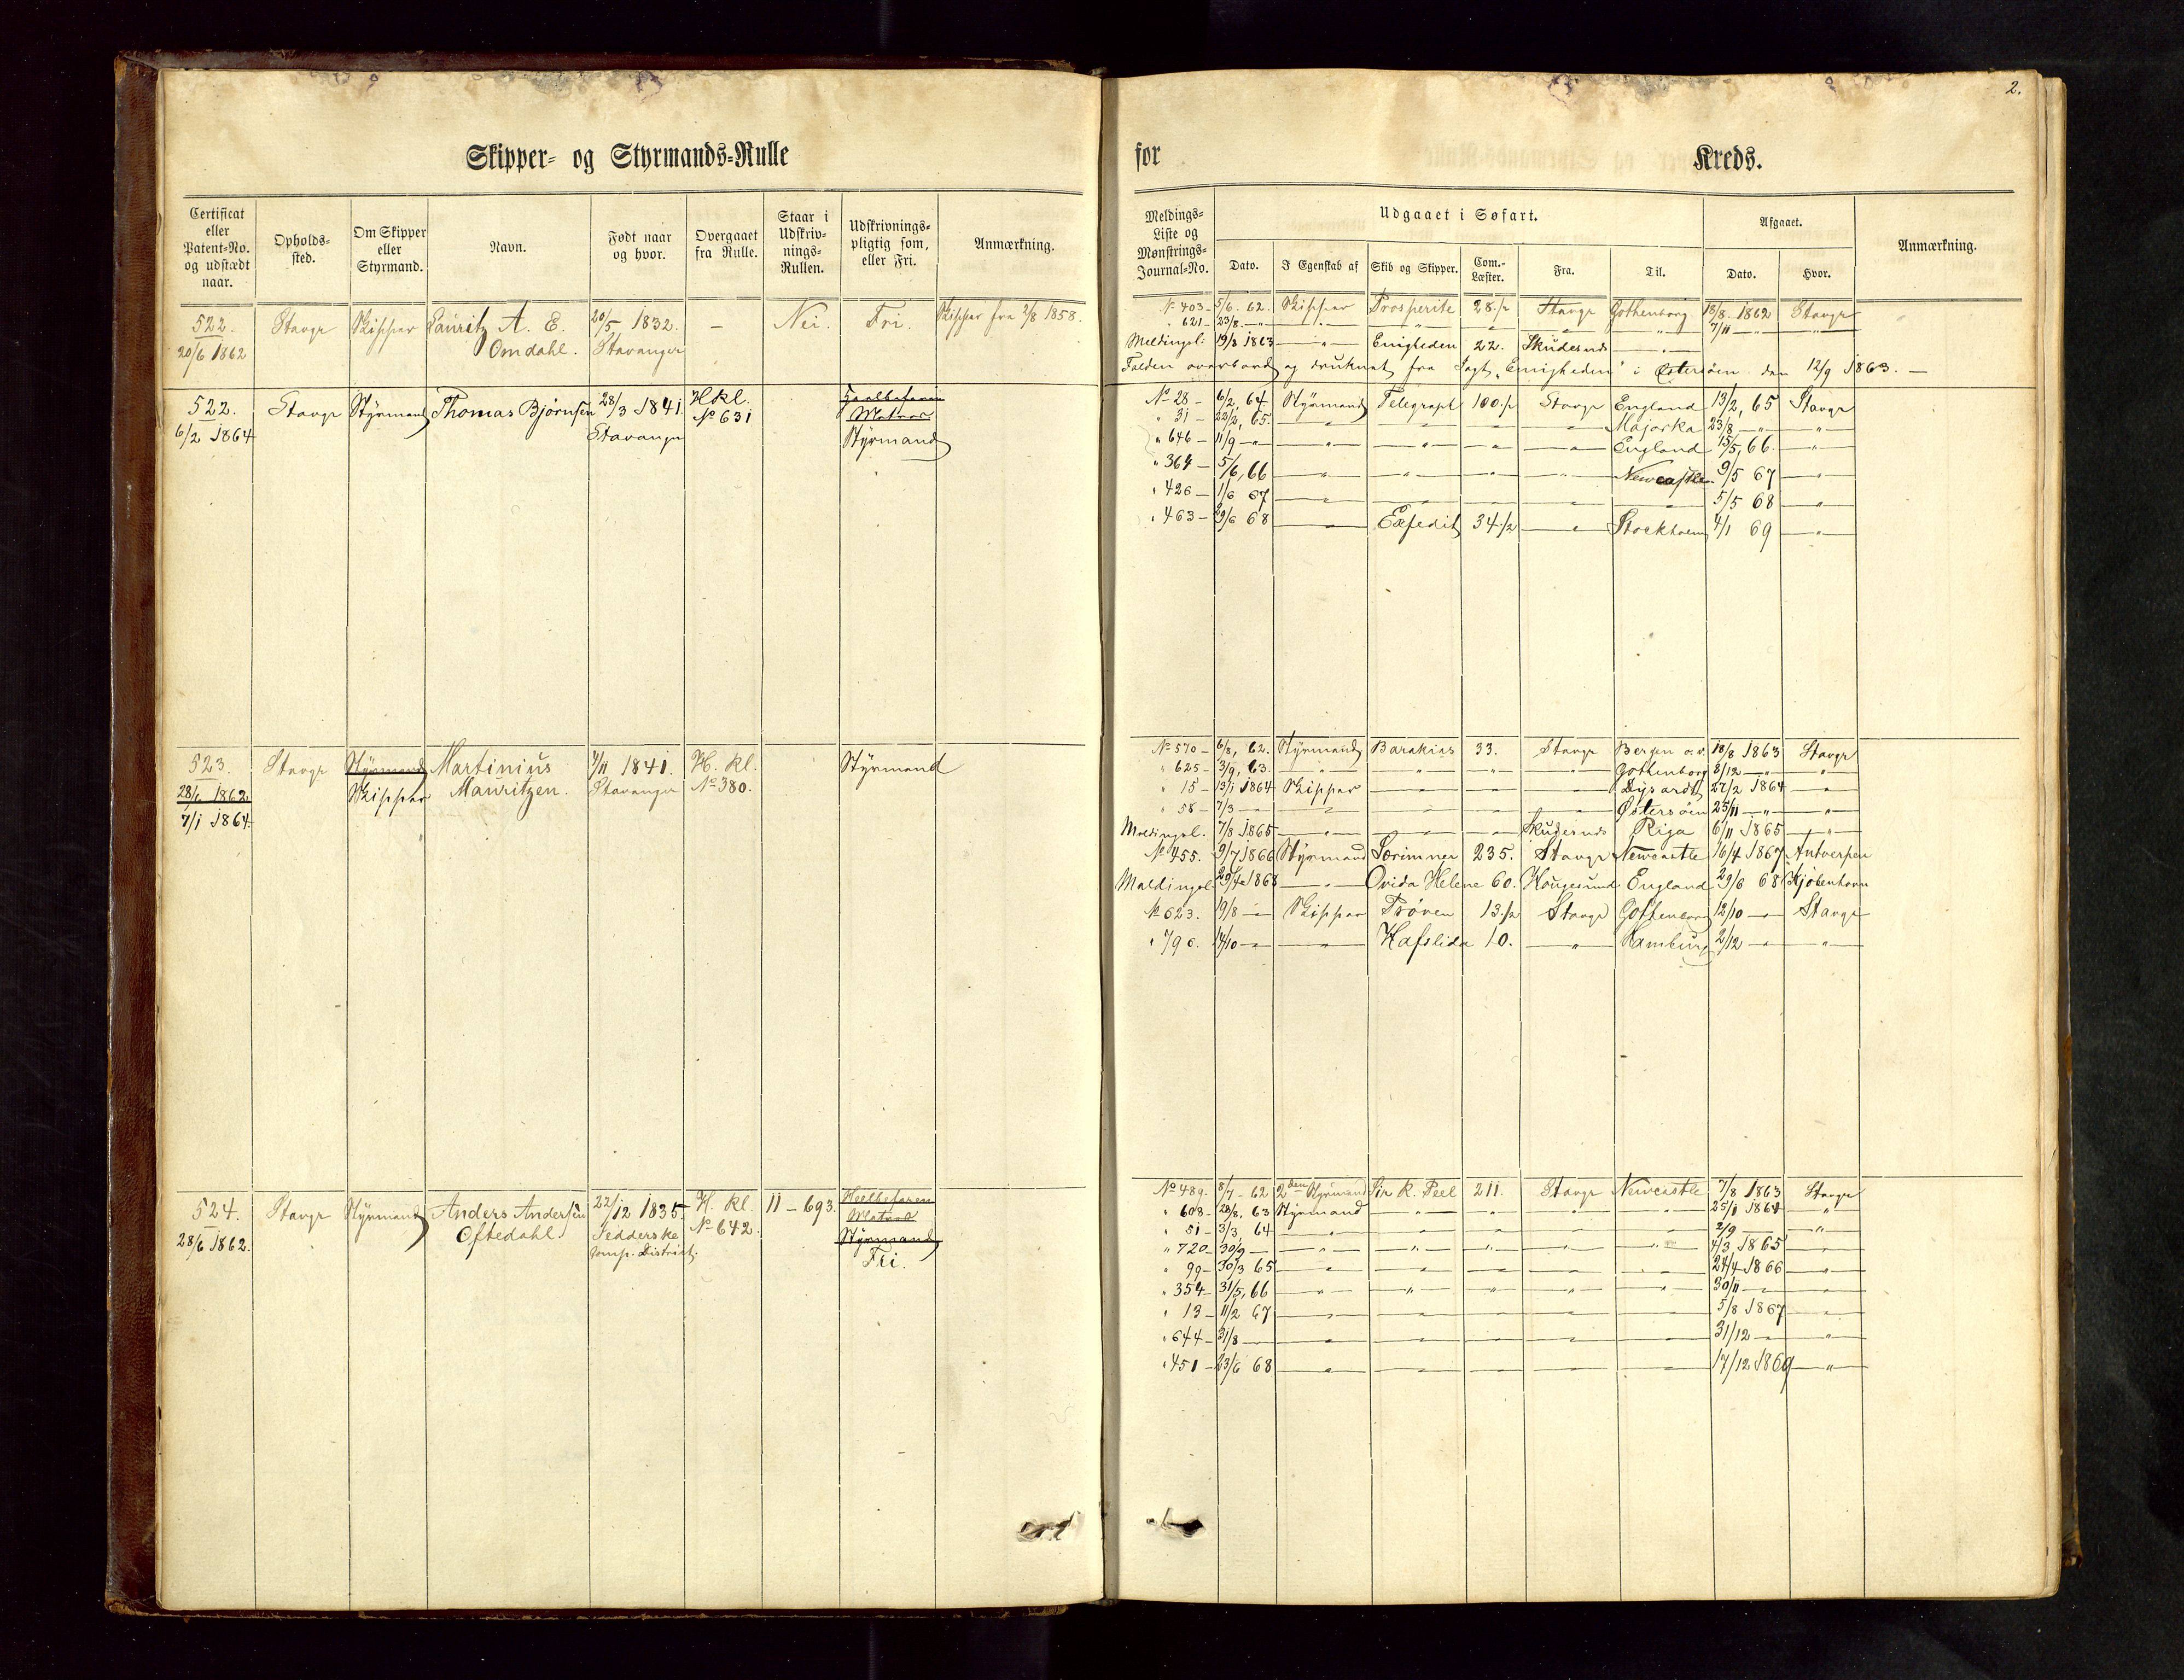 2.
Skipper- og Styrmands-Rulle for Kreds.
Certificat eller Patent-No. og udstædt naar.
Opholds-sted.
Om Skipper eller Styrmand.
Navn.
Født naar og hvor.
Overgaaet fra Rulle.
Staar i Udskriv-nings-Rullen.
Udskrivnings-pligtig som, eller Fri.
Anmærkning.
Meldings-Liste og Mønstrings-Journal-No.
Udgaaet i Søfart.
Dato.
I Egenskab af
Skib og Skipper.
Com.-Læster.
Fra.
Til.
Afgaaet.
Dato.
Hvor.
Anmærkning.
522. Stavgr Skipper Lauritz A. E. 20/5 1832. – Nei. Fri. Skipper fra 2/8 1858.
20/6 1862 Omdahl. Stavanger
No 403 – 5/6. 62. Skipper Prosperite 28 1/2 Stavgr Gothenborg 18/8 1862 Stavgr
" 621 – 23/8 – " – " – " – " – " – " 7/11 – " – "
Meldingsl. 19/8 1863 – " – Enigheden 22. Skudesnds – " –
Falden overbord og druknet fra Jagt "Enigheden" i Østersøen den 12/9 1863. –
522. Stavgr Styrmand Thomas Bjørnsen 28/3 1841. H kl. Heelbefaren
6/2 1864 Stavanger No 631 Matros
Styrmand
No 28 – 6/2, 64 Styrmand Telegraph 100 1/2 Stavgr England 13/2, 65 Stavgr
" 31 – 22/2, 65. – " – " – " – " Majorka 23/8 – " – "
" 646 – 11/9 – " – " – " – " – " England 15/5, 66. – "
" 364 – 5/6, 66 – " – " – " – " Newcastle 9/5 67 – "
" 426 – 1/6 67 – " – " – " – " – " 5/5 68 – "
" 463 – 29/6 68 – " Expedit 34 1/2 – " Stockholm 4/1 69 – "
523. Stavgr Styrmand Martinius 7/11 1841. H. kl. Styrmand
28/6 1862. Skipper Mauritzen. Stavanger No 380.
7/1 1864.
No 570 – 6/8, 62. Styrmand Barakins 33. Stavgr Bergen o.v. 18/8 1863 Stavgr
" 625 – 3/9, 63. – " – " – " – " Gothenborg 8/12 – " – "
" 15 – 13/1 1864 Skipper – " – " – " Dysardt 27/2 1864 – "
" 58 – 7/3 – " – " – " – " – " Østersøen 25/11 – " – "
Meldingsl. 7/8 1865 – " – " – " Skudesnds Riga 6/11 1865 – "
No 455. 9/7 1866 Styrmand Særimner 235. Stavgr Newcastle 16/4 1867 Antverpen
Meldingsl. 29/4 1868 – " – Ovida Helene 60. Hougesund England 29/6 68 Kjøbenhavn
No 623. 19/8 – " Skipper Prøven 13 1/2 Stavgr Gothenborg 12/10 – Stavgr
" 790. 14/10 – " – " – Hafslida 10. – " Hamburg 2/12 – " – "
524. Stavgr Styrmand Anders Andersen 22/12 1835. H. kl. 11 – 693. Heelbefaren
28/6 1862. Oftedahl. Jedderske No 642. Matros
Comp. District. Styrmand
Fri.
No 489. 8/7 – 62 2den Styrmand Sir R. Peel 211. Stavgr Newcastle 7/8 1863 Stavgr
" 608 – 28/8, 63 Styrmand – " – " – " – " 25/1 1864 – "
" 51 – 3/3, 64 – " – " – " – " – " 2/9 – " – "
" 720 – 30/9 – " – " – " – " – " – " 4/3 1865 – "
" 99 – 30/3 65 – " – " – " – " – " 24/4 1866 – "
" 354 – 31/5, 66 – " – " – " – " – " 30/11 – " – "
" 13 – 11/2 67 – " – " – " – " – " 5/8 1867 – "
" 644 – 31/8 – " – " – " – " – " – " 31/12 – " – "
" 451 – 23/6 68 – " – " – " – " – " 17/12 1869 – "